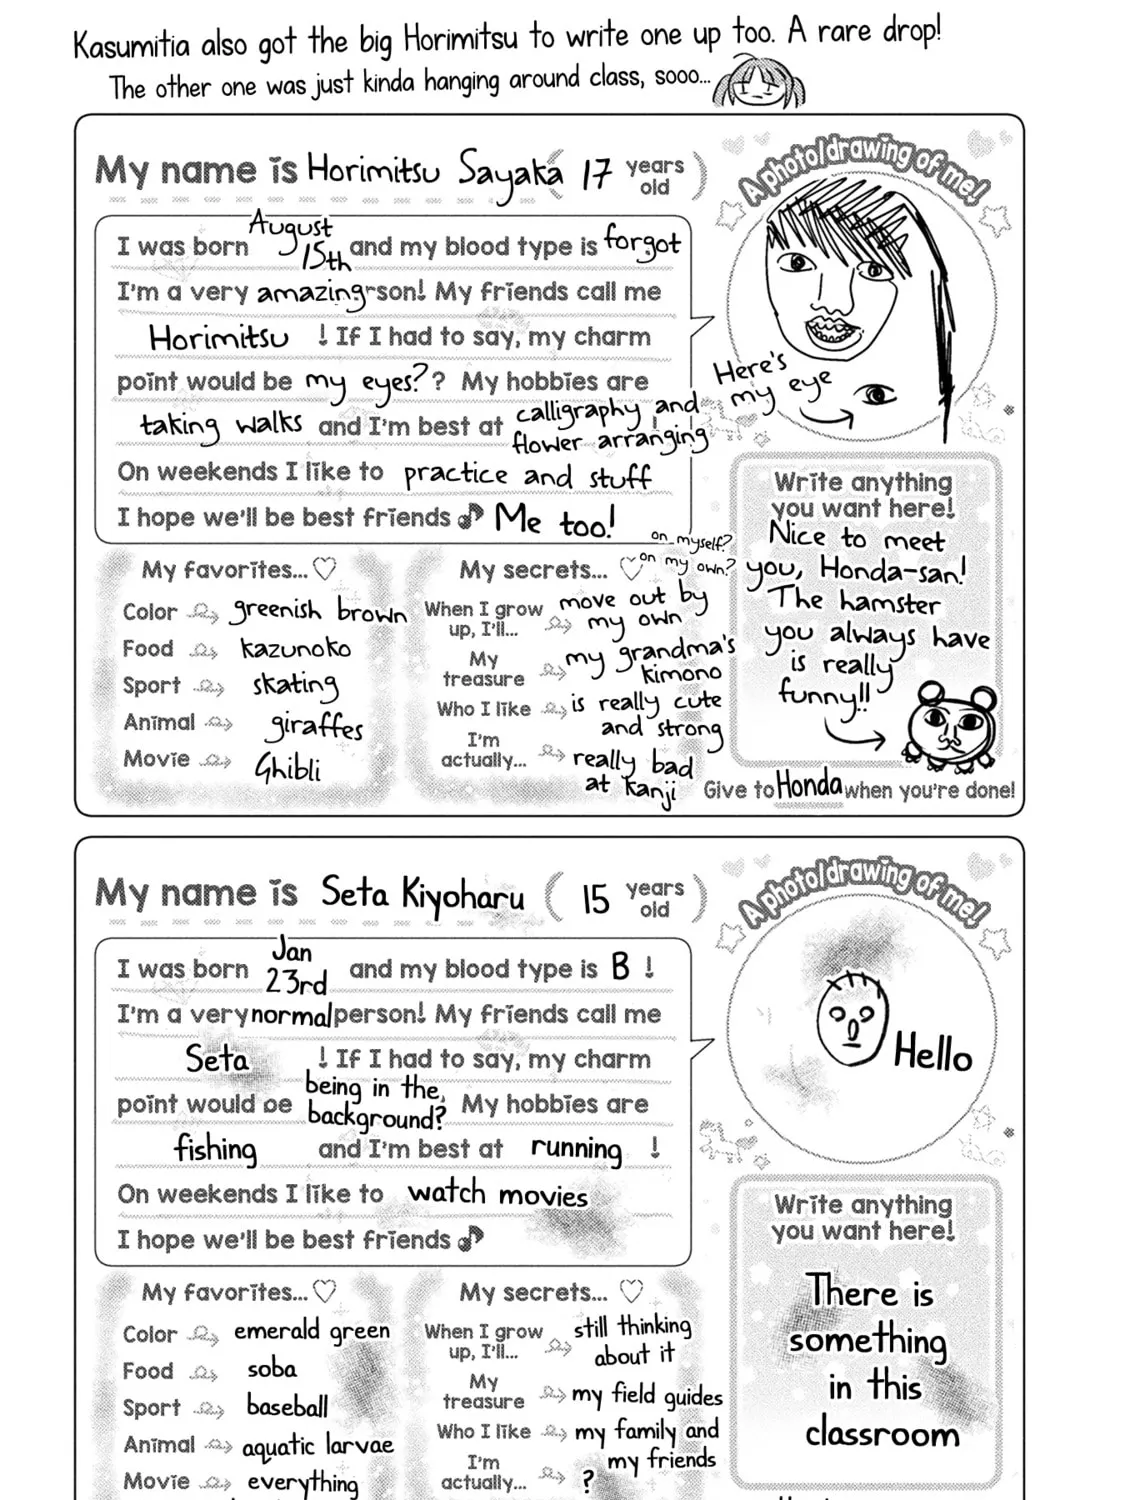 Kasumitia also got the big Horimitsu to write one up too. A rare drop!
The other one was just kinda hanging around class, sooo...
My name is Horimitsu Sayaka (17 years old)
A photo/drawing of me!
I was born August 15th and my blood type is forgot
I'm a very amazing rson! My friends call me
Horimitsu ! If I had to say, my charm
point would be my eyes?? My hobbies are
taking walks and I'm best at calligraphy and flower arranging !
On weekends I like to practice and stuff
I hope we'll be best friends♪ Me too!
Here's my eye
My favorites...♡
Color greenish brown
Food kazunoko
Sport skating
Animal giraffes
Movie Ghibli
My secrets...♡
on myself?
on my own?
When I grow up, I'll... move out by my own
My treasure my grandma's kimono
Who I like is really cute and strong
I'm actually... really bad at kanji
Write anything you want here!
Nice to meet
you, Honda-san!
The hamster
you always have
is really
funny!!
Give to Honda when you're done!
My name is Seta Kiyoharu (15 years old)
A photo/drawing of me!
I was born Jan 23rd and my blood type is B !
I'm a very normal person! My friends call me
Seta ! If I had to say, my charm
point would be being in the background? My hobbies are
fishing and I'm best at running !
On weekends I like to watch movies
I hope we'll be best friends♪
Hello
My favorites...♡
Color emerald green
Food soba
Sport baseball
Animal aquatic larvae
Movie everything
My secrets...♡
When I grow up, I'll... still thinking about it
My treasure my field guides
Who I like my family and my friends
I'm actually... ?
Write anything you want here!
There is
something
in this
classroom